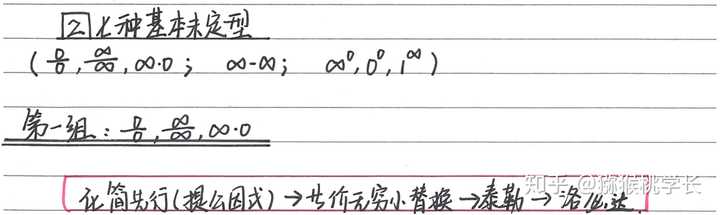 2 七种基本未定型
(0/0, ∞/∞, ∞·0; ∞-∞; ∞⁰, 0⁰, 1^∞)
第一组: 0/0, ∞/∞, ∞·0
化简先行(提公因式)→等价无穷小替换→泰勒→洛必达.
知乎 @猕猴桃学长